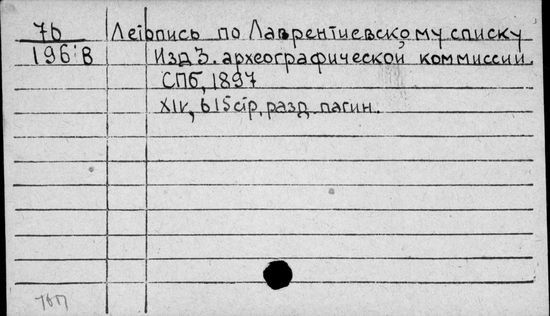 7б Летопись по Лаврентиевскому списку
196:8 Изд 3. археографической коммиссии.
СПб, 1897
XIV, 615стр, разд. пагин.